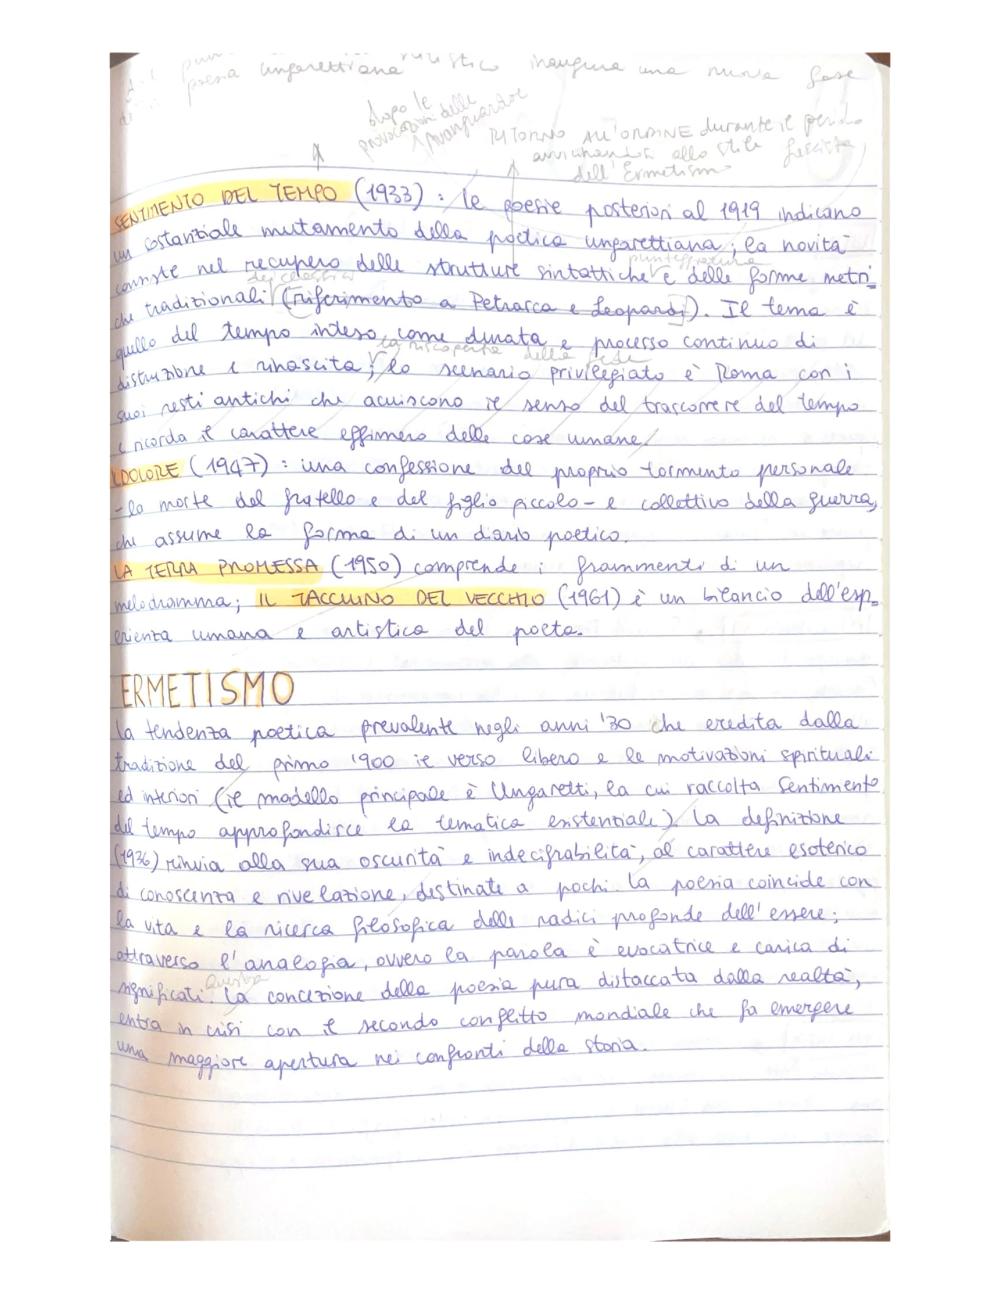 poesia ungarettiana inaugura una nuova fase
dopo le
provocazioni delle
avanguardie
RITORNO ALL'ORDINE durante il periodo
avvicinandosi allo stile fascista
dell'Ermetismo
SENTIMENTO DEL TEMPO (1933) : le poesie posteriori al 1919 indicano
un costanziale mutamento della poetica ungarettiana; la novità
punteggiatura
consiste nel recupero delle strutture sintattiche e delle forme metri-
dei classici
che tradizionali (riferimento a Petrarca e Leopardi). Il tema è
quello del tempo inteso come durata e processo continuo di
la riscoperta della fede
distruzione e rinascita; lo scenario privilegiato è Roma con i
suoi resti antichi che acuiscono il senso del trascorrere del tempo
e ricorda il carattere effimero delle cose umane.
IL DOLORE (1947) : una confessione del proprio tormento personale
- la morte del fratello e del figlio piccolo - e collettivo della guerra,
che assume la forma di un diario poetico.
LA TERRA PROMESSA (1950) comprende i frammenti di un
melodramma; IL TACCUINO DEL VECCHIO (1961) è un bilancio dell'esp-
erienza umana e artistica del poeta.
ERMETISMO
la tendenza poetica prevalente negli anni '30 che eredita dalla
tradizione del primo 1900 il verso libero e le motivazioni spirituali
ed interiori (il modello principale è Ungaretti, la cui raccolta Sentimento
del tempo approfondisce la tematica esistenziale). La definizione
(1936) rinvia alla sua oscurità e indecifrabilità, al carattere esoterico
di conoscenza e rivelazione, destinate a pochi. La poesia coincide con
la vita e la ricerca filosofica delle radici profonde dell'essere;
attraverso l'analogia, ovvero la parola è evocatrice e carica di
Questa
significati. La concezione della poesia pura distaccata dalla realtà,
entra in crisi con il secondo conflitto mondiale che fa emergere
una maggiore apertura nei confronti della storia.